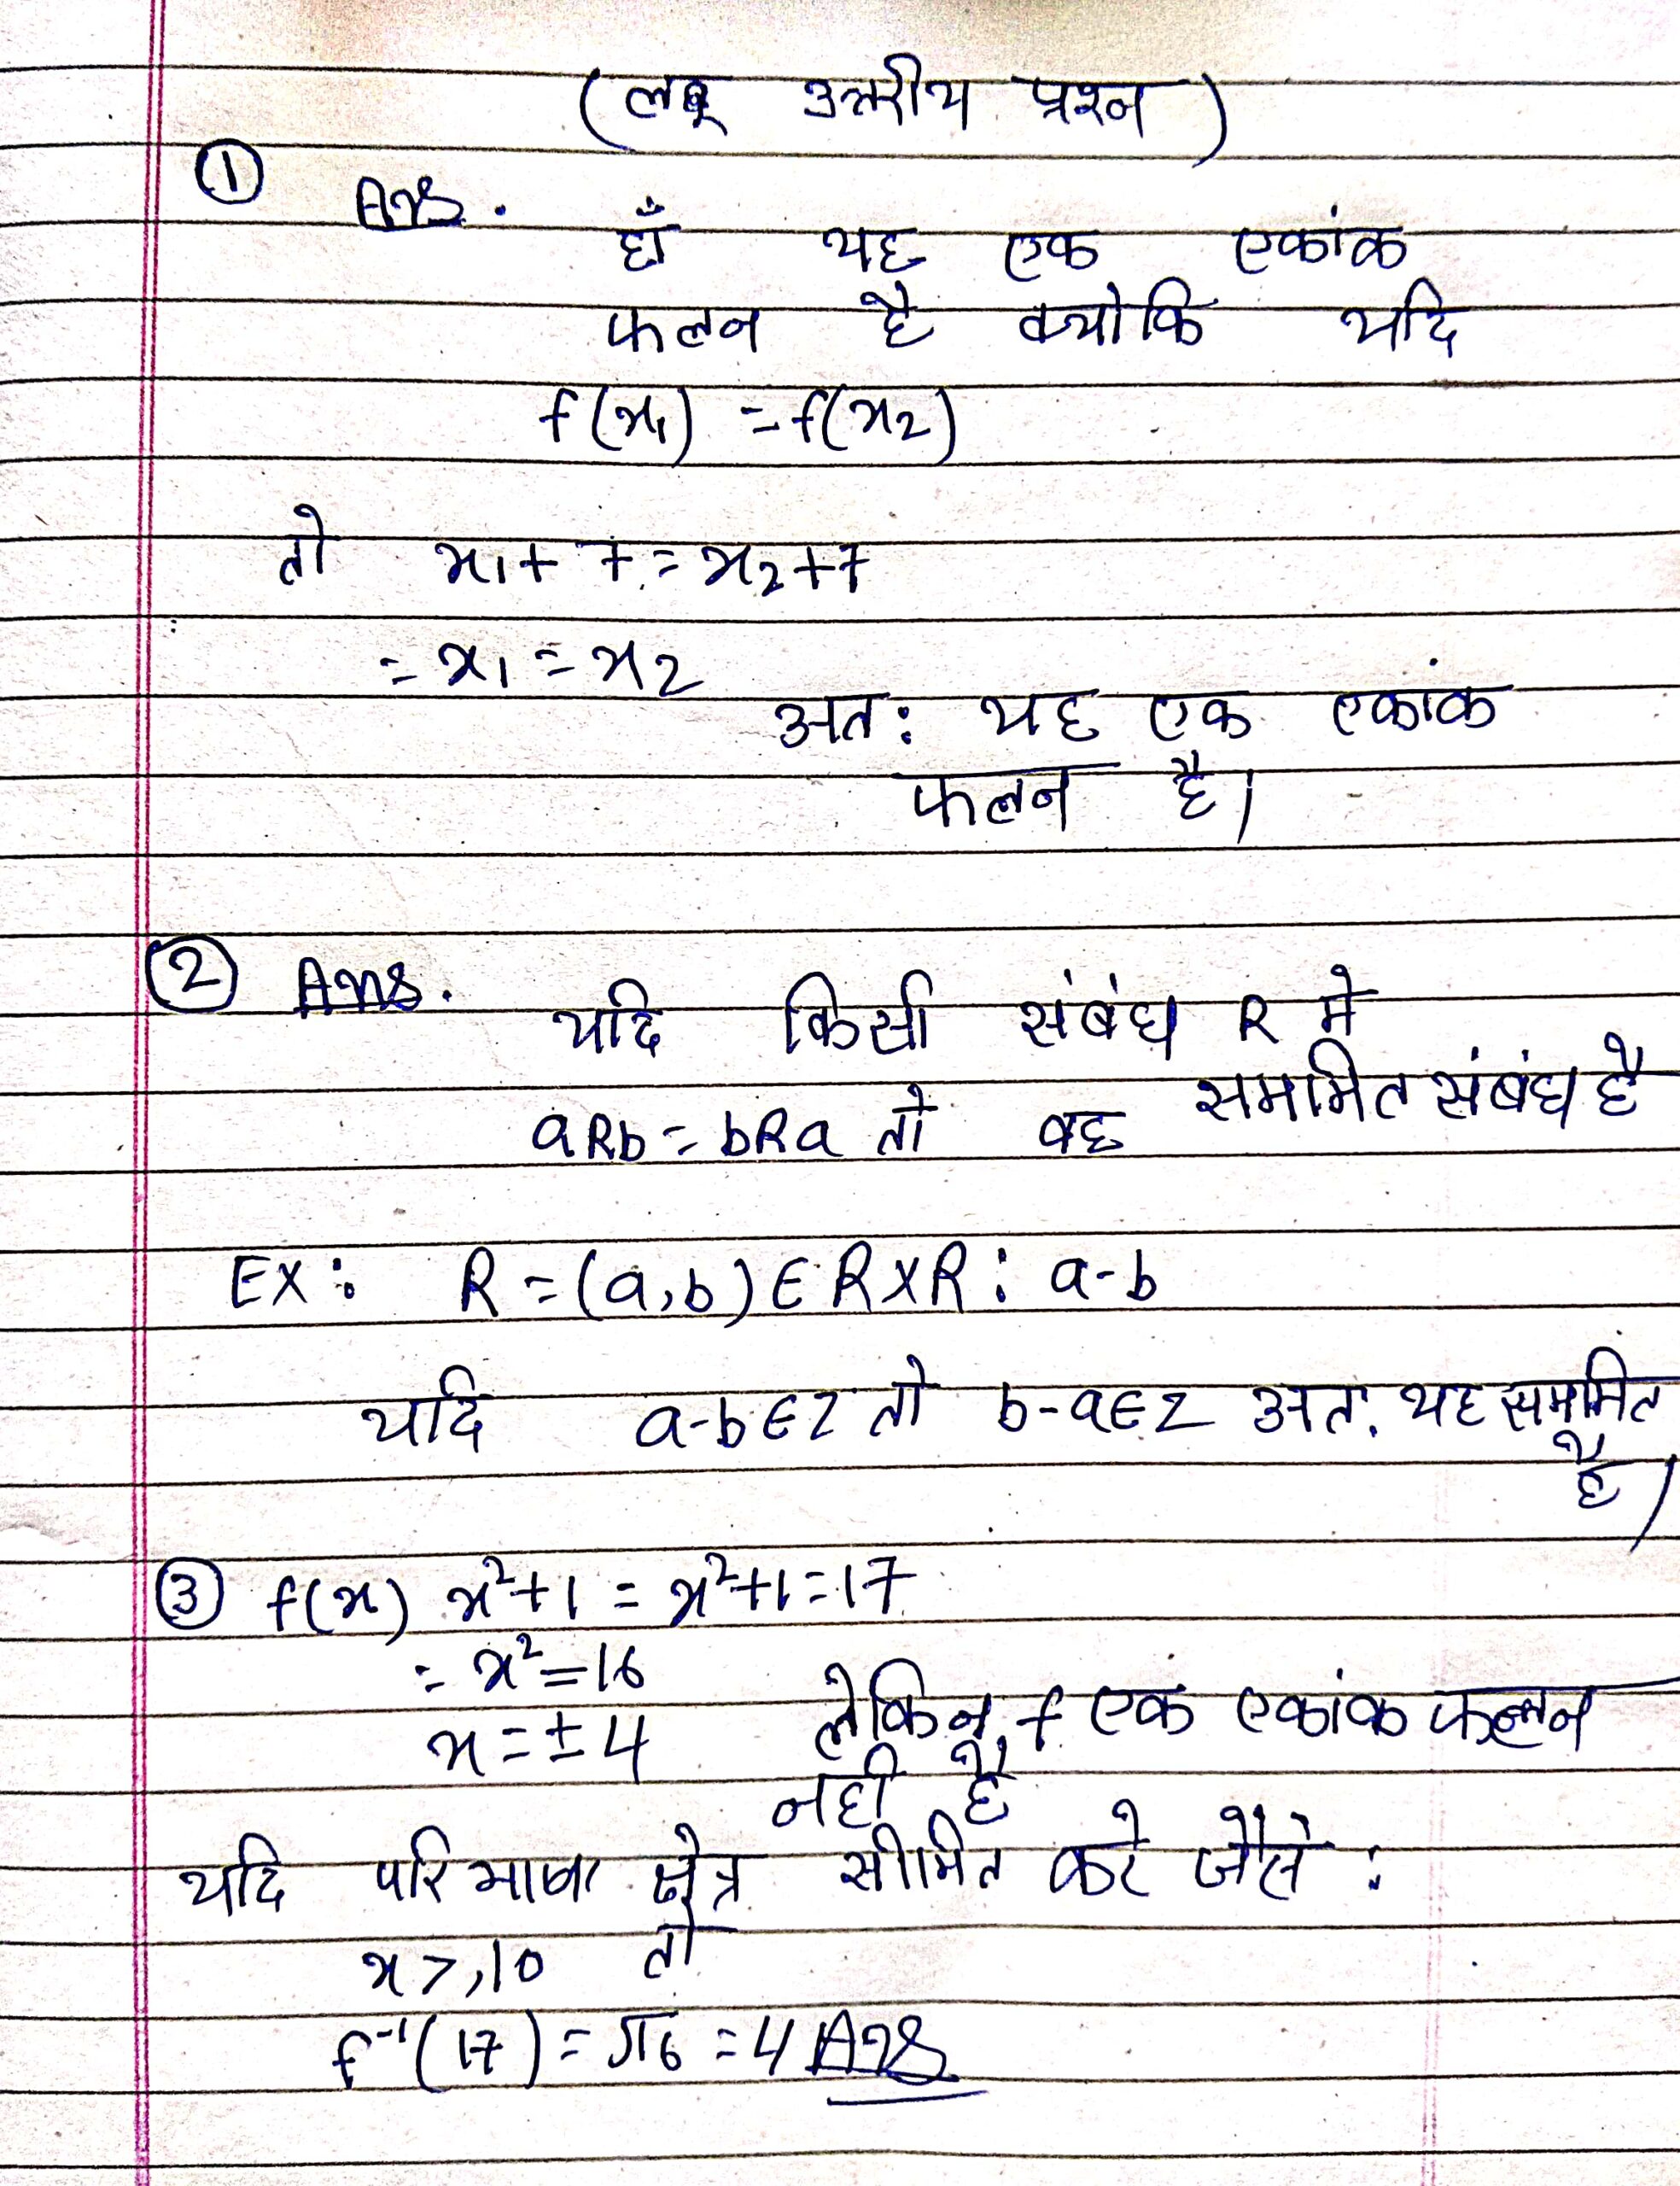 (लघु उत्तरीय प्रश्न)
① Ans. हाँ यह एक एकांक
फलन है क्योकि यदि
f(x₁) = f(x₂)
तो x₁+7=x₂+7
= x₁ = x₂
अत: यह एक एकांक
फलन है।
② Ans. यदि किसी संबंध R मे
aRb = bRa तो वह सममित संबंध है
Ex: R = (a,b) ∈ R×R : a-b
यदि a-b∈Z तो b-a∈Z अत: यह सममित
है।
③ f(x) x²+1 = x²+1=17
= x²=16
x = ±4 लेकिन f एक एकांक फलन
नही है
यदि परिभाषा क्षेत्र सीमित करे जैसे :
x>,10 तो
f⁻¹(17) = √16 = 4 Ans